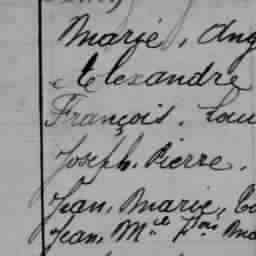 Marie, Ang
Alexandre
François, Lou
Joseph, Pierre,
Jean, Marie,
Jean, M